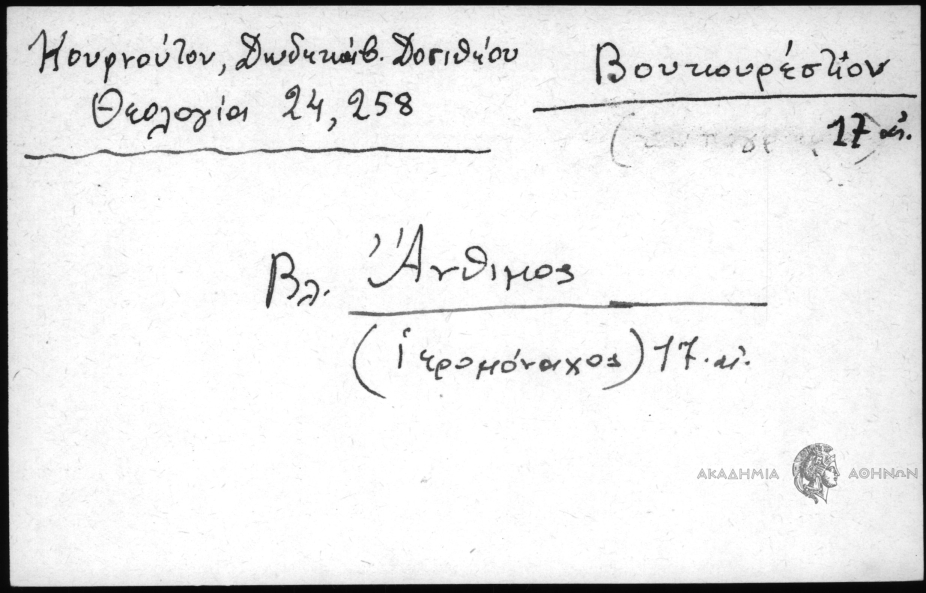 Κουρνούτου, Δωδεκάβ. Δοσιθέου
Θεολογία 24, 258
Βουκουρέστιον
17 αἰ.
Βλ. Ἄνθιμος
(ἱερομόναχος) 17. αἰ.
ΑΚΑΔΗΜΙΑ ΑΘΗΝΩΝ